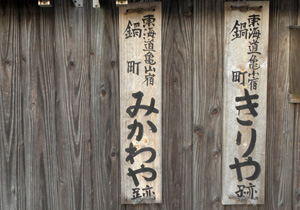 東海道亀山宿
鍋町
きりや跡
東海道亀山宿
鍋町
みかわや跡